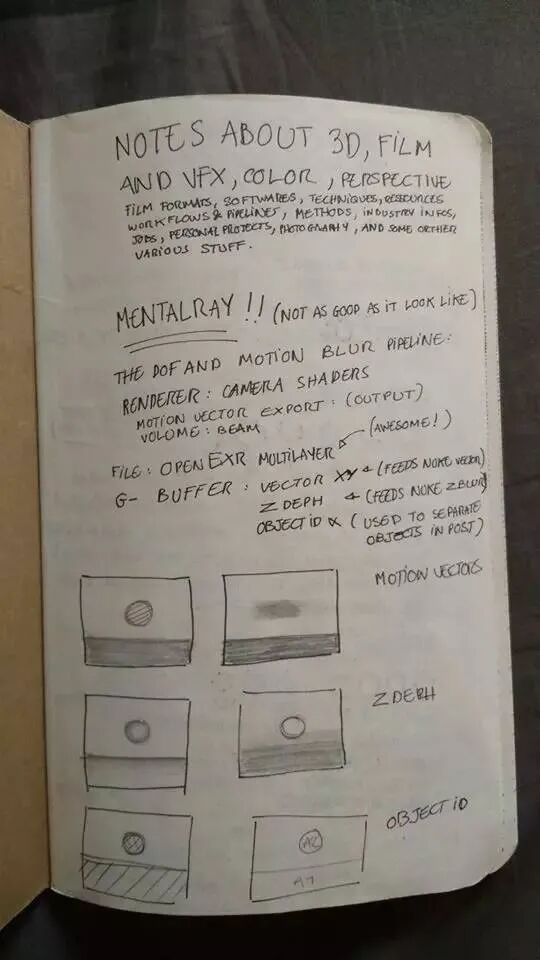 NOTES ABOUT 3D, FILM
AND VFX, COLOR, PERSPECTIVE
FILM FORMATS, SOFTWARES, TECHNIQUES, RESSOURCES
WORKFLOWS & PIPELINES, METHODS, INDUSTRY INFOS,
JOBS, PERSONAL PROJECTS, PHOTOGRAPHY, AND SOME ORTHER
VARIOUS STUFF.
MENTALRAY !! (NOT AS GOOD AS IT LOOK LIKE)
THE DOF AND MOTION BLUR PIPELINE:
RENDERER: CAMERA SHADERS
MOTION VECTOR EXPORT: (OUTPUT)
VOLUME: BEAM
FILE: OPENEXR MULTILAYER (AWESOME!)
G- BUFFER: VECTOR XY (FEEDS NUKE VECTOR)
Z DEPH (FEEDS NUKE ZBLUR)
OBJECT ID (USED TO SEPARATE
OBJECTS IN POST)
MOTION VECTORS
Z DEPH
OBJECT ID
A2
A1